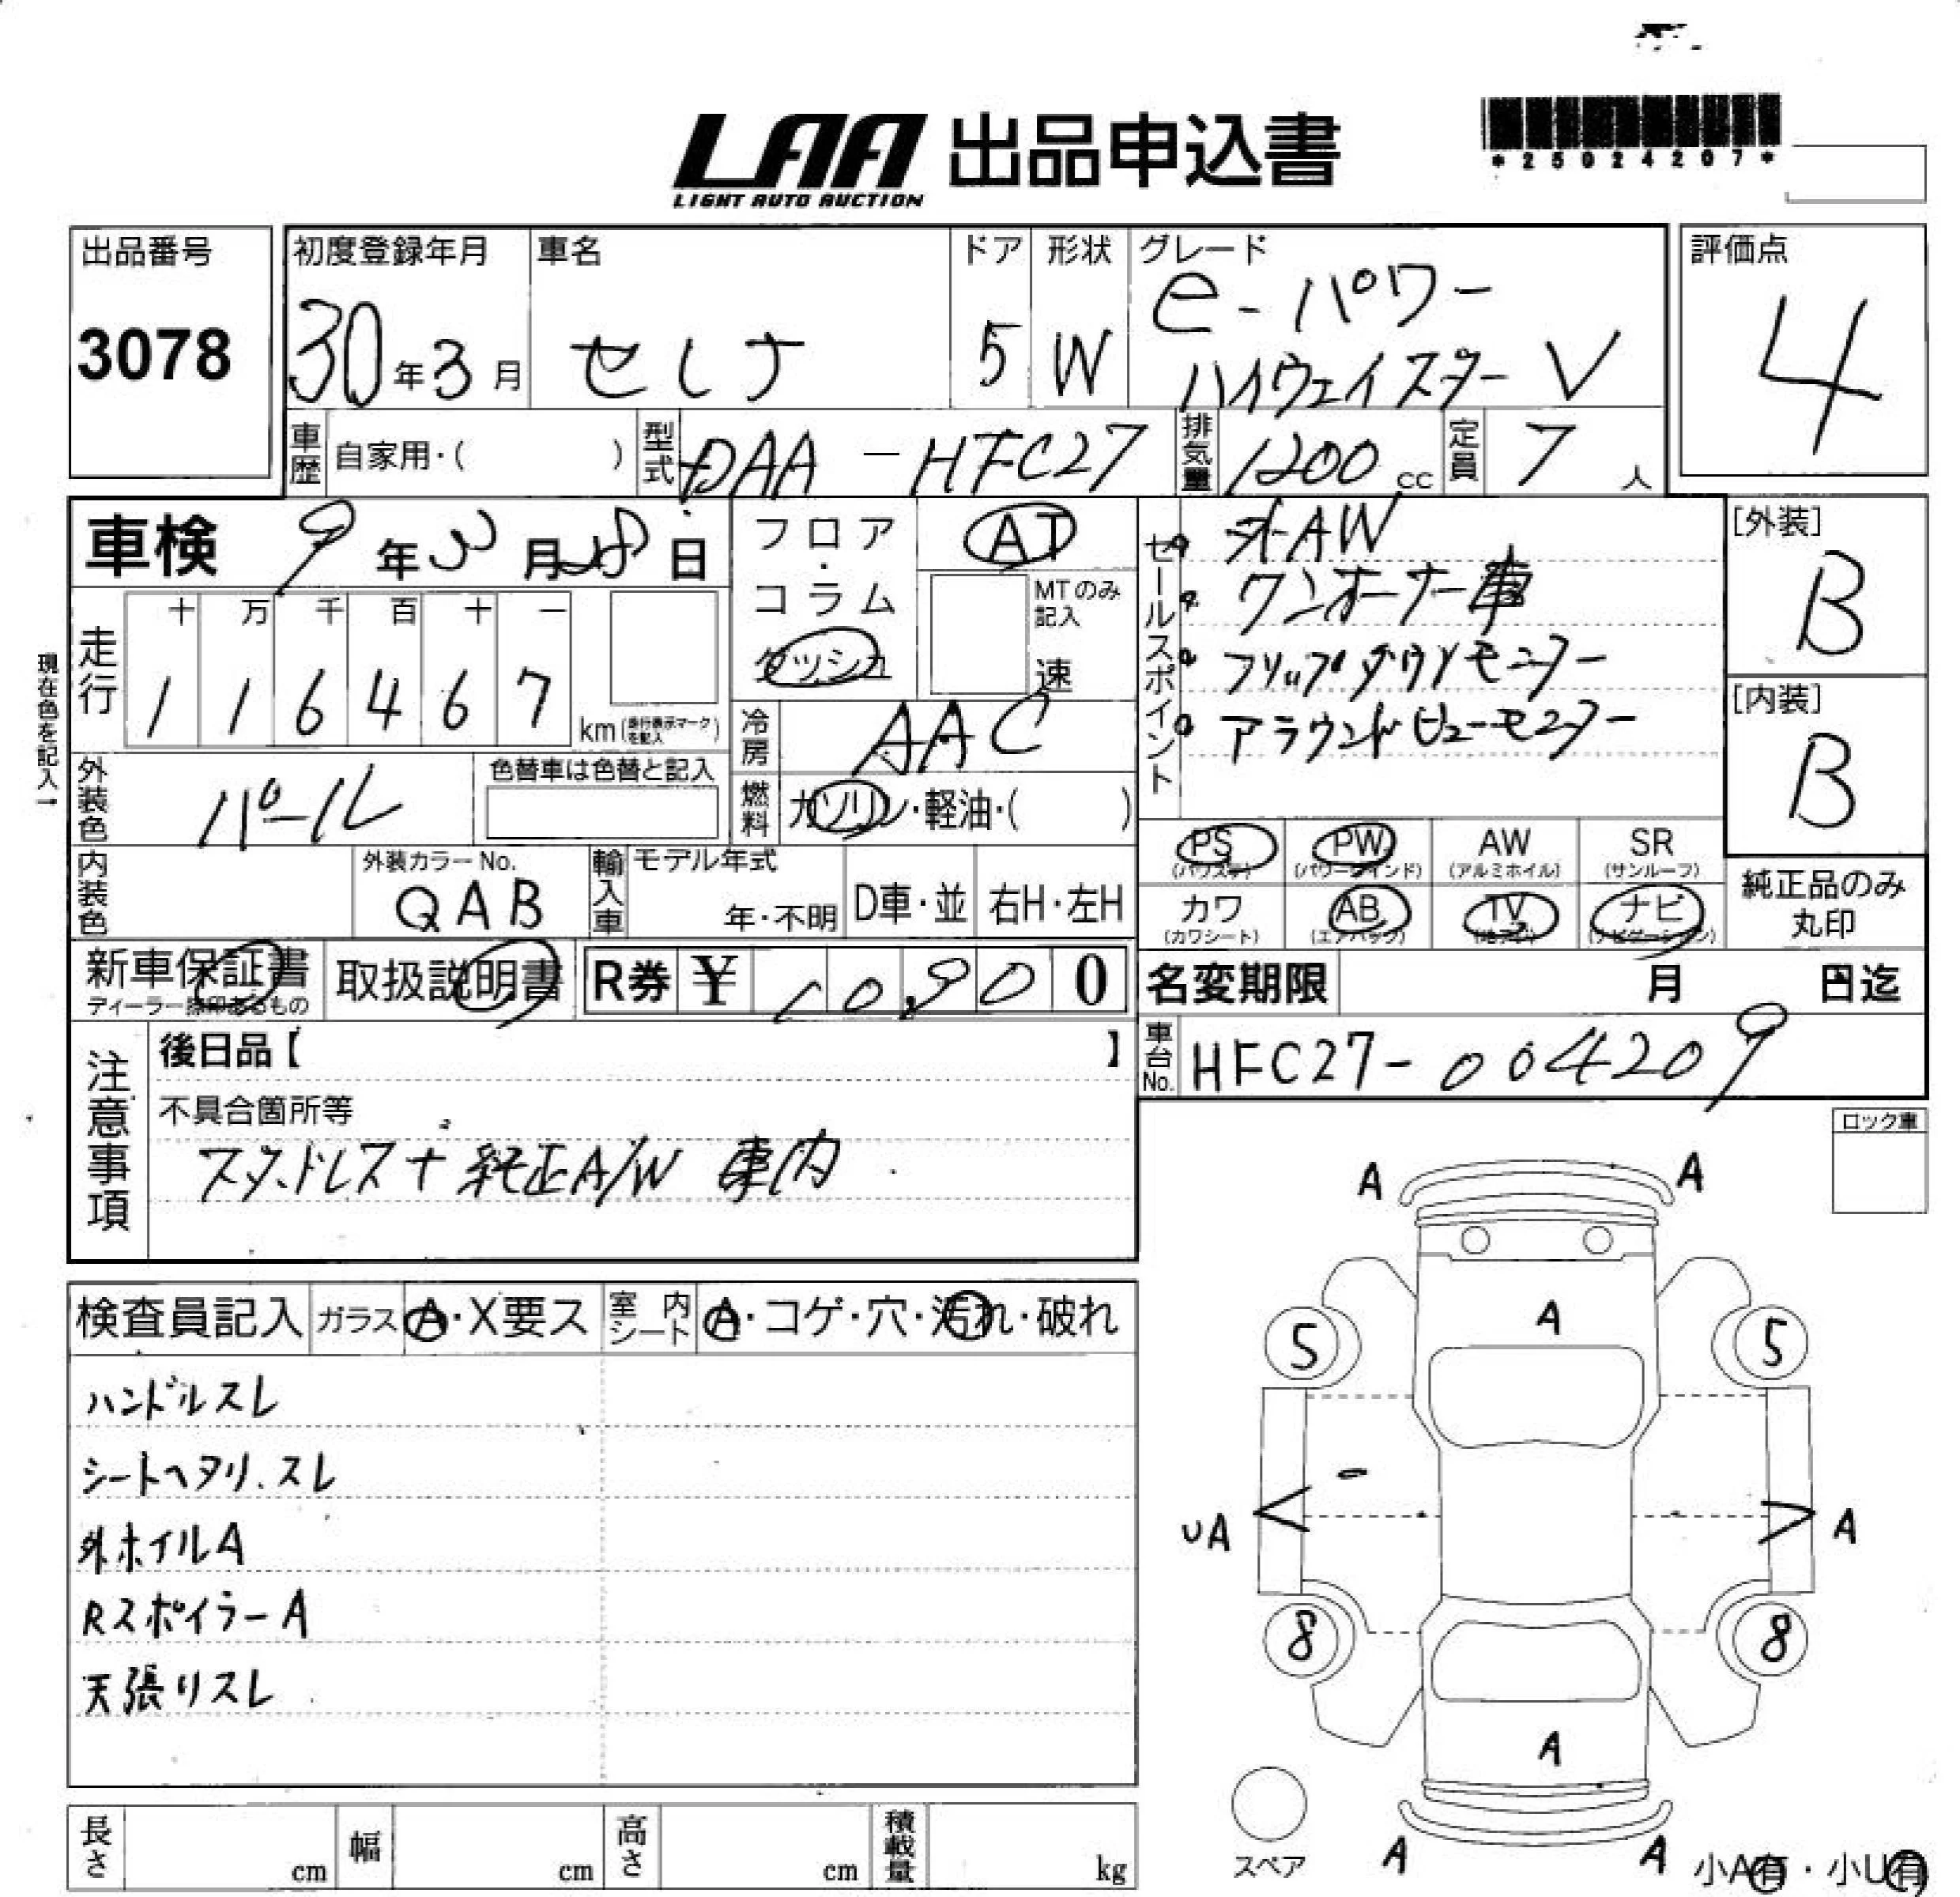 LAA 出品申込書
LIGHT AUTO AUCTION
*25024207*
出品番号
3078
初度登録年月
30年3月
車名
セレナ
ドア
5
形状
W
グレード
e-パワー
ハイウェイスターV
評価点
4
車歴 自家用・( )
型式 DAA-HFC27
排気量 1200cc
定員 7人
車検 9年3月28日
フロア・コラム
ダッシュ
AT
MTのみ記入
速
セールスポイント
。社外AW
。ワンオーナー車
。フリップダウンモニター
。アラウンドビューモニター
[外装]
B
[内装]
B
現在色を記入→
走行
十 万 千 百 十 一
1 1 6 4 6 7
km(走行表示マークを記入)
冷房 AAC
外装色 パール
色替車は色替と記入
燃料 ガソリン・軽油・( )
PS PW AW SR
(パワステ) (パワーウインド) (アルミホイル) (サンルーフ)
内装色
外装カラーNo.
QAB
輸入車
モデル年式
年・不明
D車・並
右H・左H
カワ AB TV ナビ
(カワシート) (エアバック) (地デジ) (ナビゲーション)
純正品のみ
丸印
新車保証書
ディーラー捺印あるもの
取扱説明書
R券 ¥ 10,900
名変期限 月 日迄
注意事項
後日品【 】
車台No. HFC27-004209
不具合箇所等
スタッドレス+純正A/W 車内
ロック車
検査員記入 ガラス A・X要ス
室内シート A・コゲ・穴・汚れ・破れ
ハンドルスレ
シートヘタリ.スレ
外ホイルA
Rスポイラー A
天張りスレ
A A
A
5 5
UA A
8 8
A
A A
スペア
小A有・小U有
長さ cm
幅 cm
高さ cm
積載量 kg